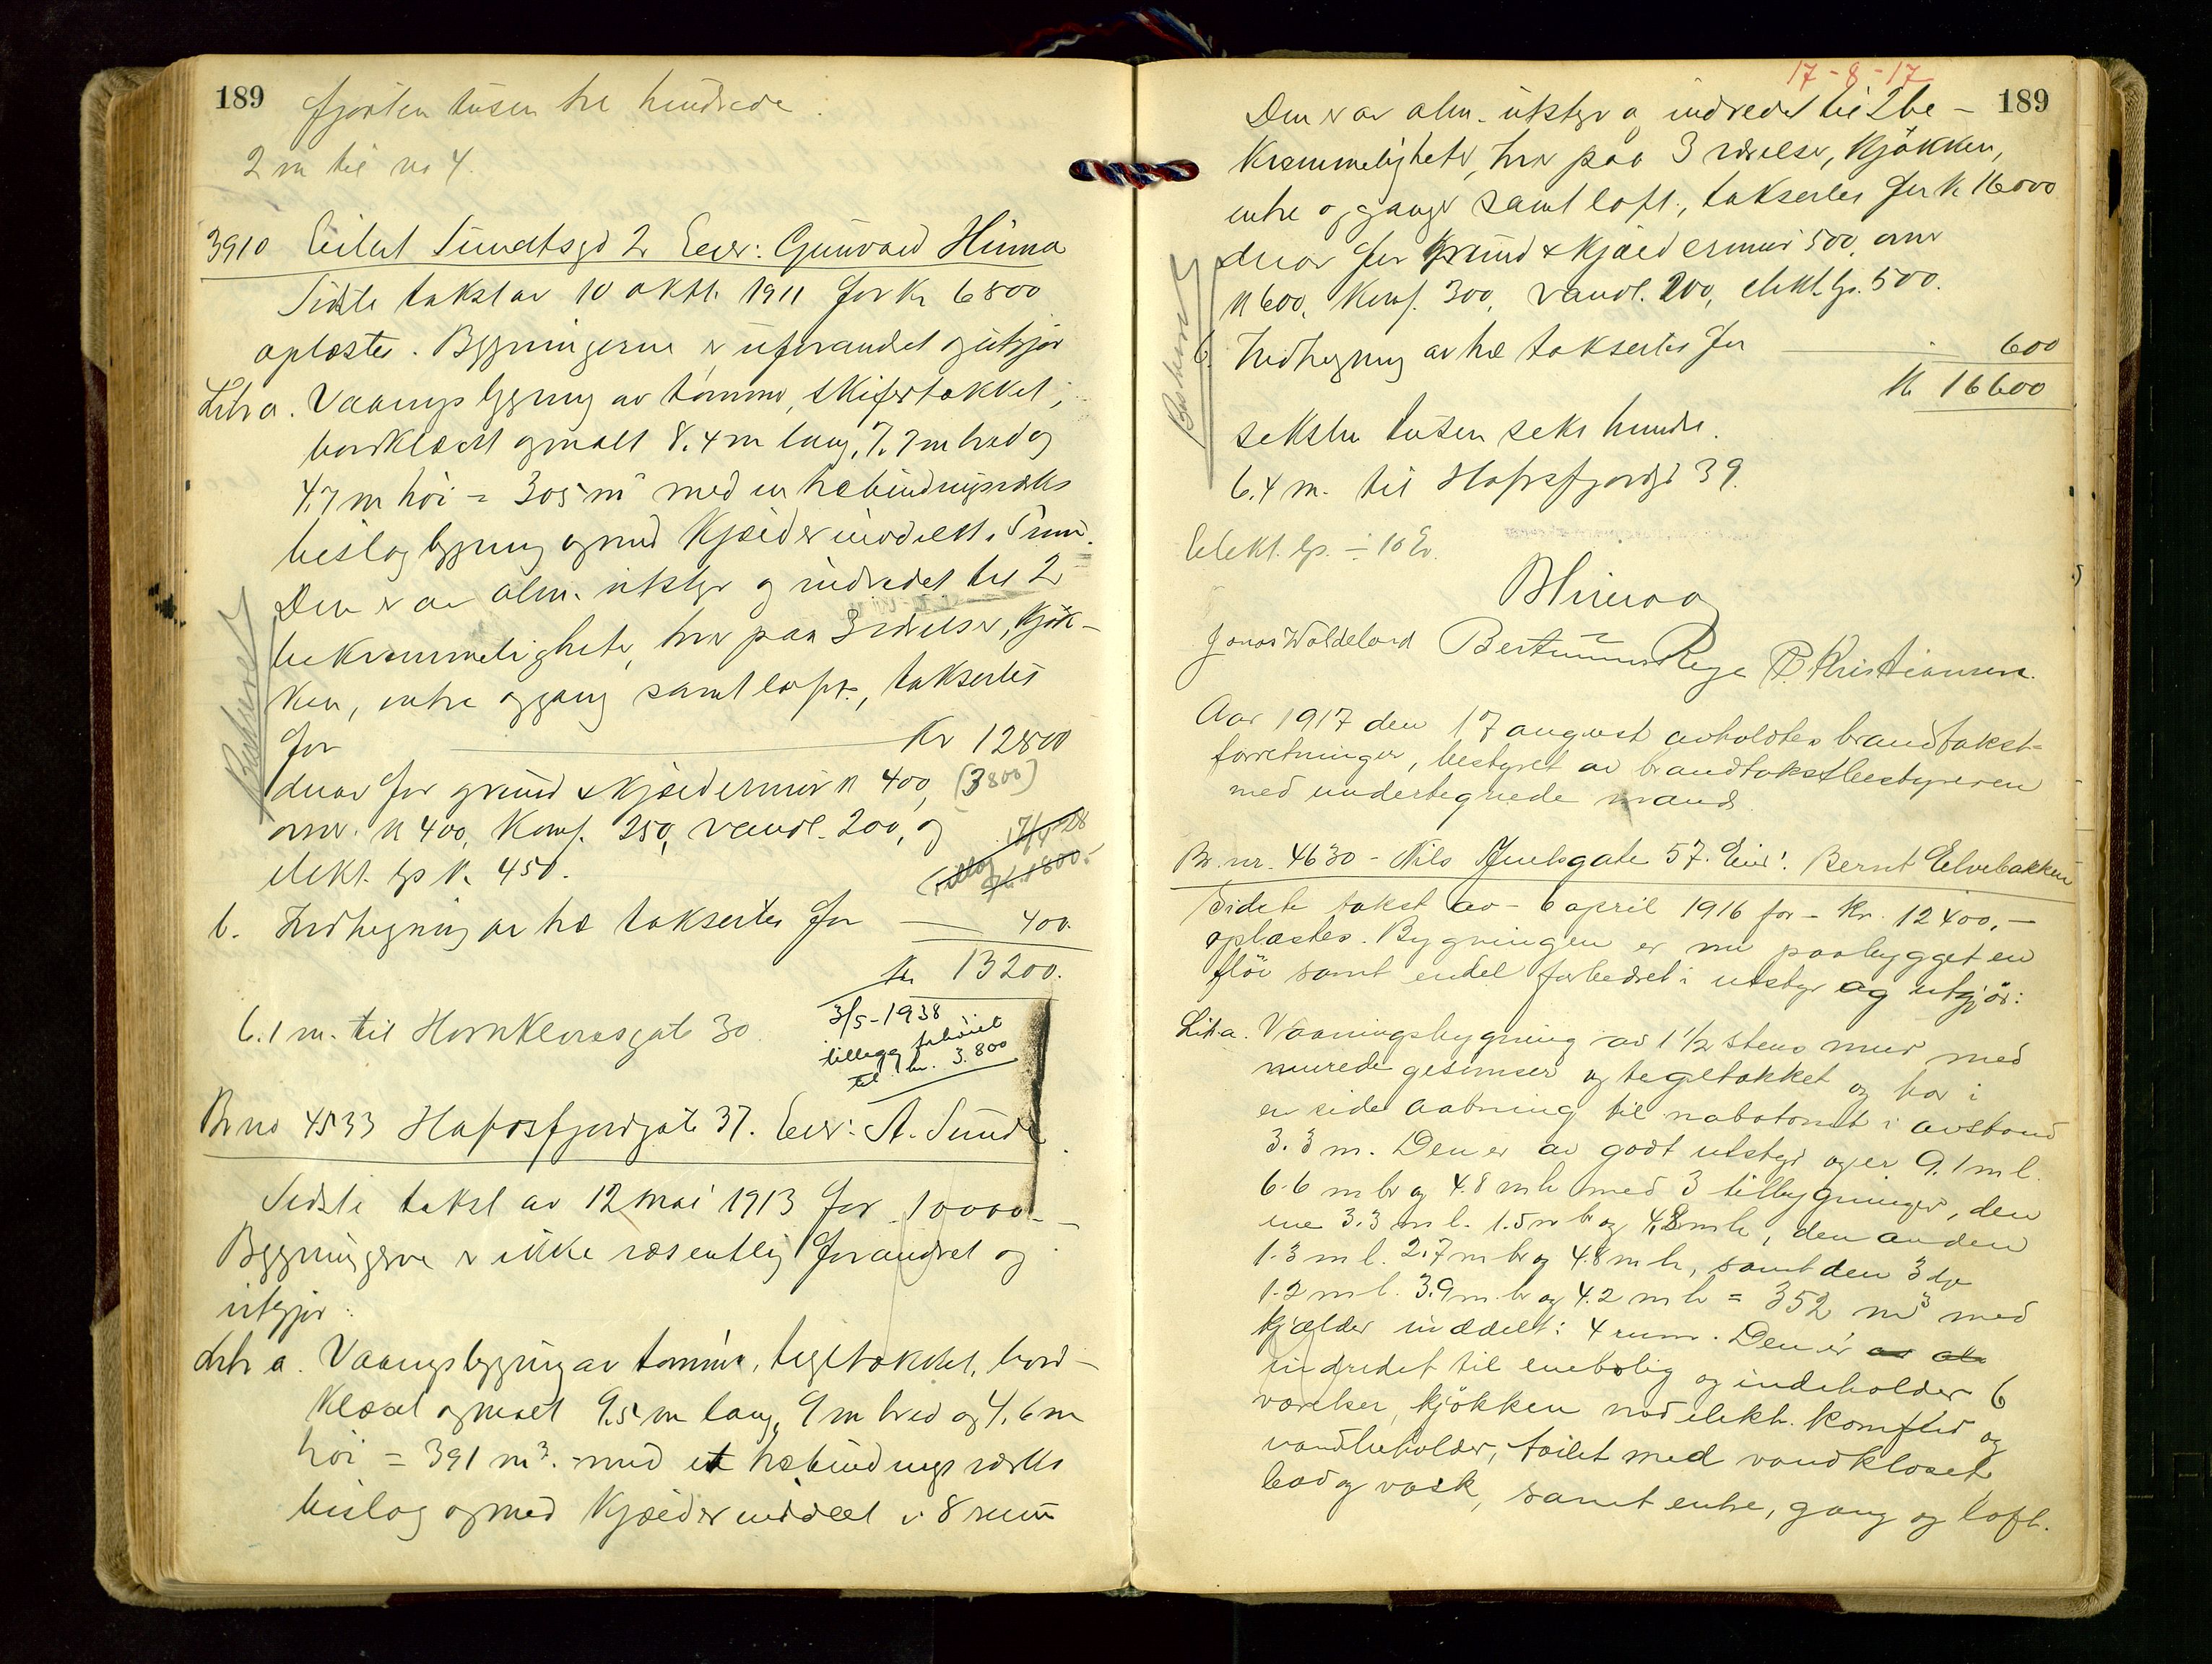 189
fjorten tusen tre hundrede.
2 m til no 4.
3910 Eilert Sundtsgd 2 Eier: Gunvald Hinna
Sidste takst av 10 oktb. 1911 for Kr 6800
oplæstes. Bygningerne er uforandret og utgjør
Litr a. Vaaningsbygning av tømmer, skifertækket,
bordklædt og malt 8.4 m lang, 7.7 m bred og
4.7 m høi = 305 m³ med en træbindingsværks
bislagbygning og med kjælder inddelt i 5 rum.
Den er av alm. utstyr og indredet til 2
bekvæmmeligheter, hver paa 3 værelser, kjøk-
ken, entre og gang samt loft, taksertes
for Kr 12800
derav for grund & kjældermur K 400, (3800)
ovner K 400, Komf. 250, vandl. 200, og
elekt. lys K. 450.
17/4-28
(Tillæg
Kr. 1800.-
b. Indhegning av træ taksertes for — 400.
Kr 13200.
3/5-1938
tillegg forhöiet
til kr. 3.800
6.1 m. til Hornklovesgate 30
Beskrevet
Br no 4533 Hafrsfjordgate 37. Eier: A. Sunde
Sidste takst av 12 mai 1913 for 10000.-
Bygningerne er ikke væsentlig forandret og
utgjør:
Litr a. Vaaningsbygning av tømmer, tegltækket, bord-
klædt og malt 9.5 m lang, 9 m bred og 4.6 m
høi = 391 m³. med et træbindingsværks
bislag og med kjælder inddelt i 8 rum
17-8-17
189
Den er av alm. utstyr og indredet til 2 be-
kvæmmeligheter, hver paa 3 værelser, kjøkken,
entre og ganger samt loft, takseertes for K 16000
derav for grund & kjældermur 500, ovner
K 600, Komf. 300, vandl. 200, elekt. lys. 500.
b. Indhegning av træ takseertes for — 600
Kr 16600
seksten tusen seks hundre.
6.4 m. til Hafrsfjordgd 39.
Beskrevet
Elekt. lys. ÷ 10 Ev.
B Hinnaag
Jonas Woldeland Bertinius Rege P. Kristiansen.
Aar 1917 den 17 august avholdtes brandtakst-
forretninger, bestyret av brandtakstbestyreren
med undertegnede mænd.
Br. nr. 4630 - Nils Juelsgate 57. Eier: Bernt Elvebakken
Sidste takst av - 6 april 1916 for - Kr. 12400,-
oplæstes. Bygningen er nu paabygget en
flöi samt endel forbedret i utstyr og utgjör:
Lit. a. Vaaningsbygning av 1 1/2 stens mur med
murede gesimser og tegltækket og har i
en side aabning til nabotomt i avstand
3.3 m. Den er av godt utstyr og er 9.1 m l.
6.6 m br og 4.8 m h med 3 tilbygninger, den
ene 3.3 m l. 1.5 m br og 4,8 m h, den anden
1.3 m l. 2.7 m br og 4.8 m h, samt den 3dje
1.2 m l. 3.9 m br og 4.2 m h = 352 m³ med
kjælder inddelt i 4 rum. Den er av alm
indredet til enebolig og indeholder 6
værelser, kjökken med elektr. komfür og
vandbeholder, toilet med vandkloset,
bad og vask, samt entre, gang og loft.